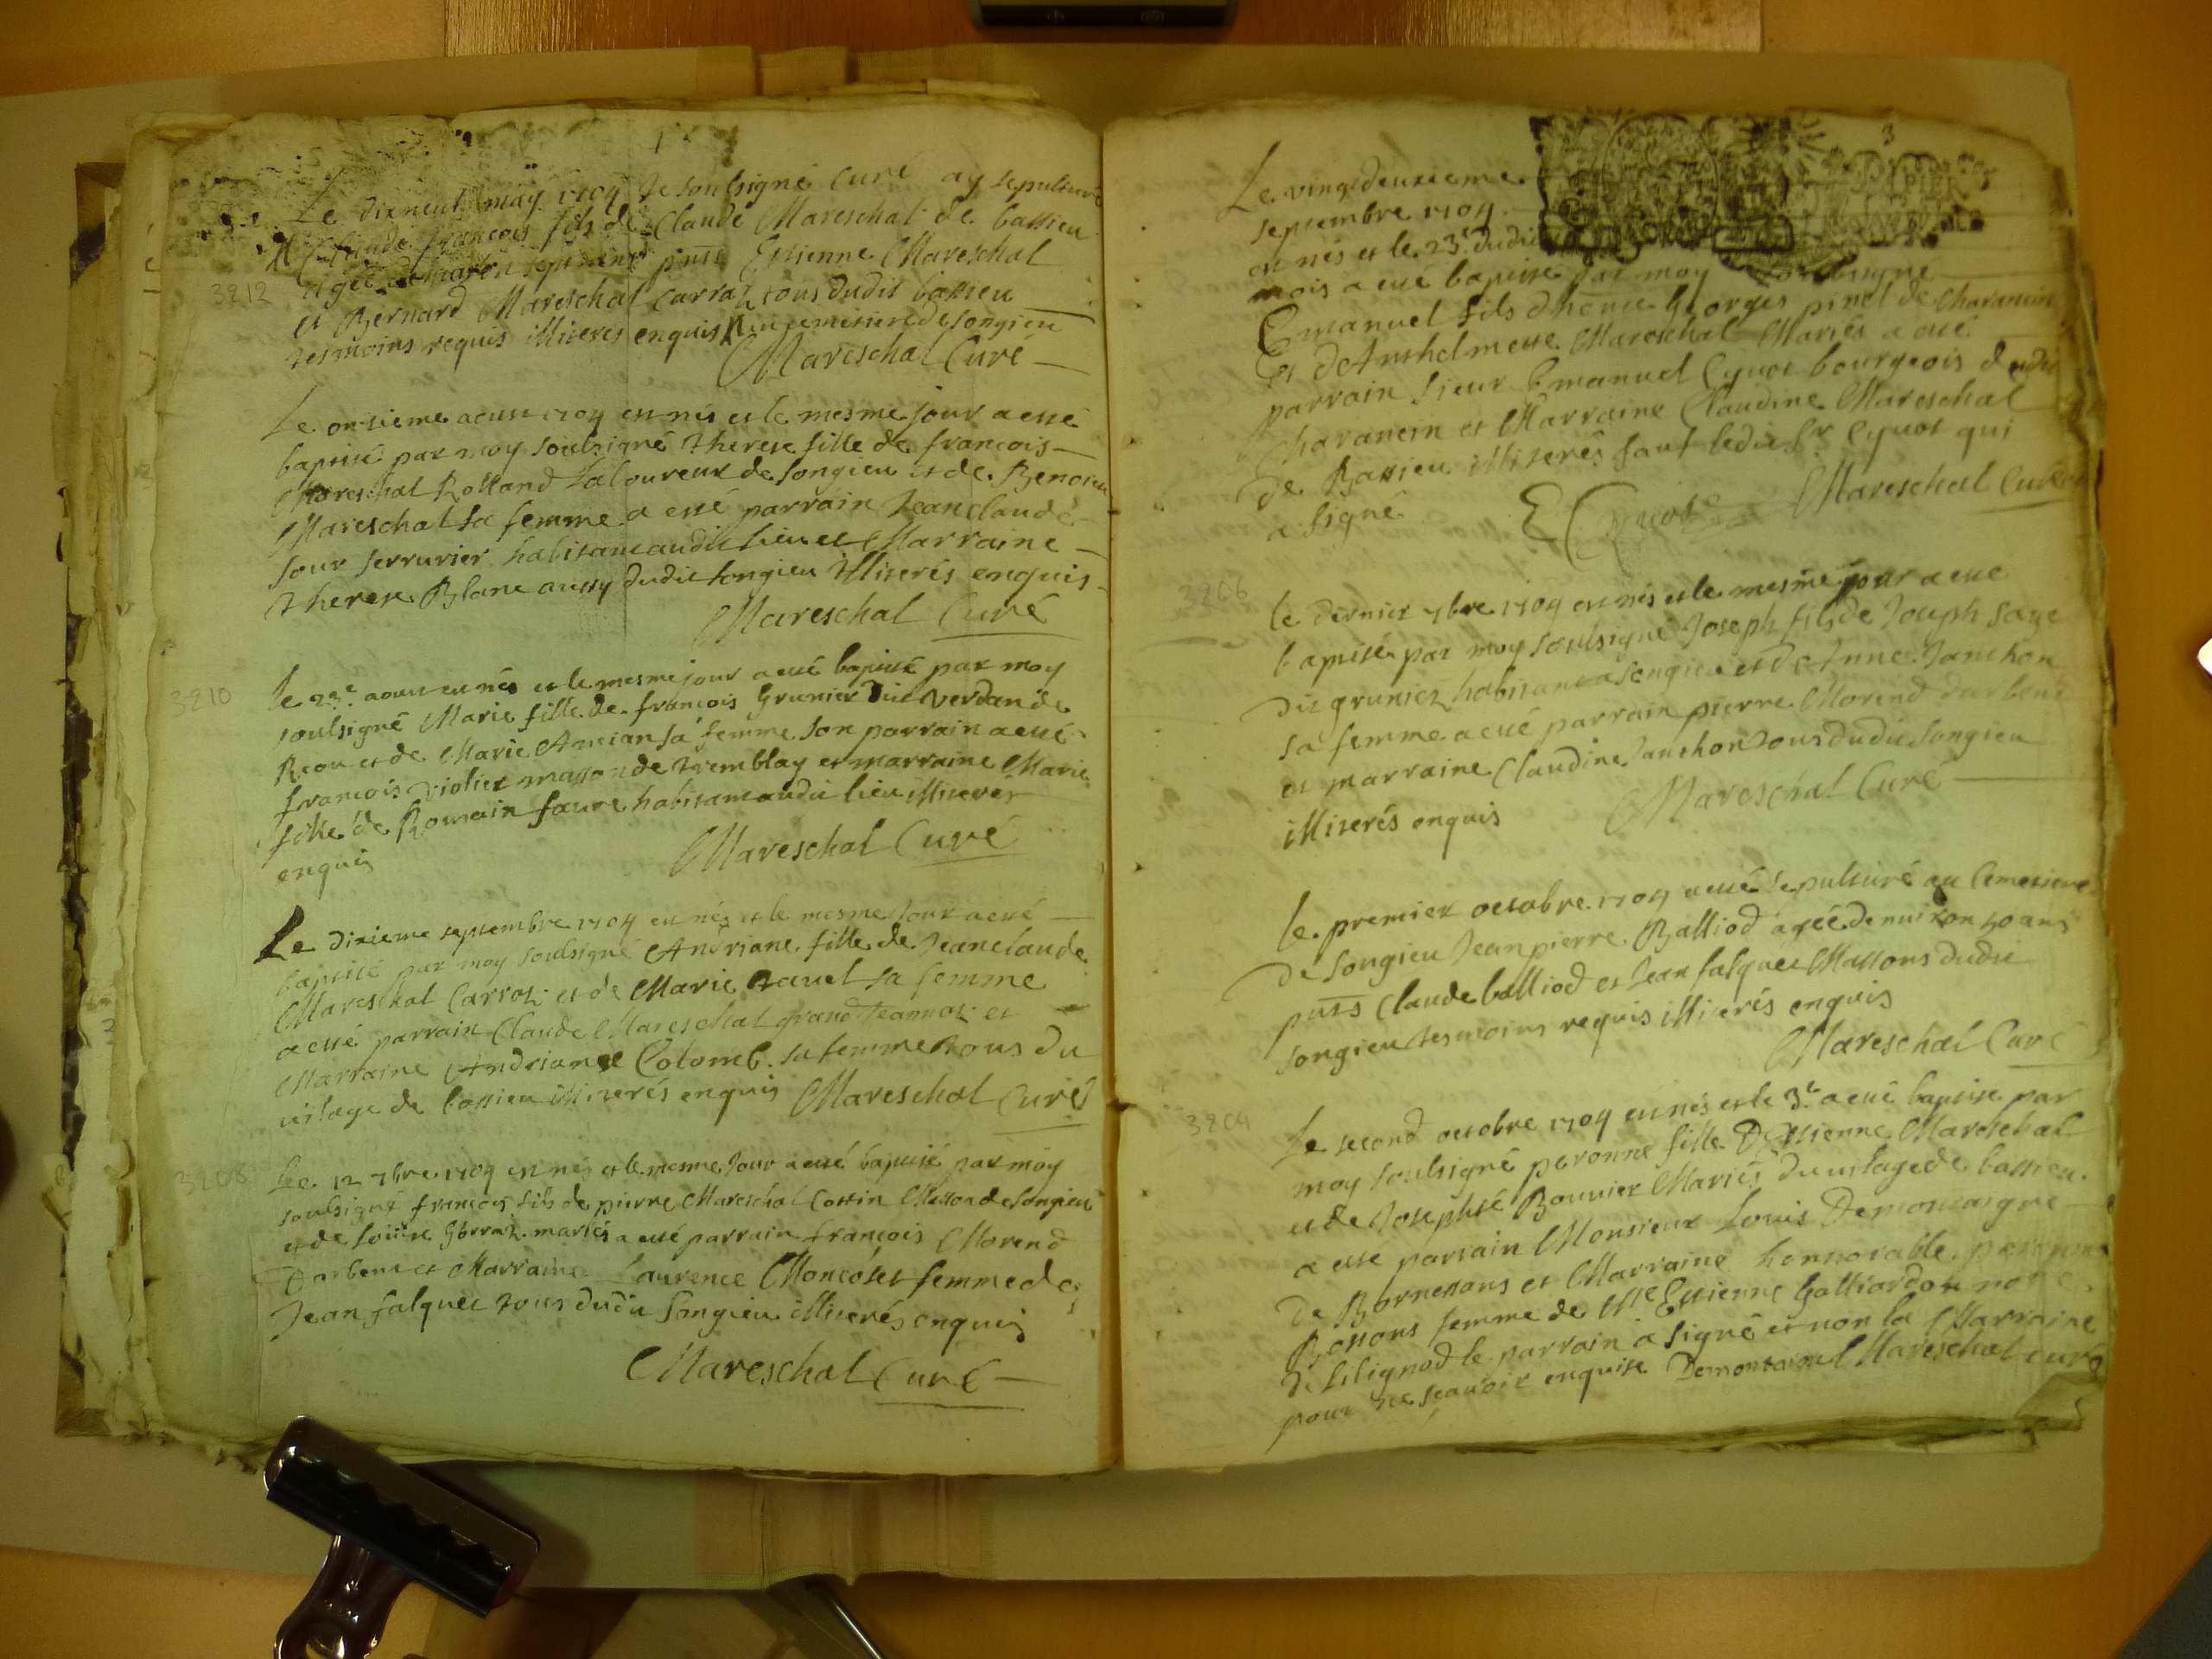 1
Le dixneuf may 1704 Je soubsigné Curé ay sepulturé
Claude françois fils de Claude Mareschal de bassieu
agée pnts Estienne Mareschal
3212
et Bernard Mareschal Carraz tous dudit bassieu
tesmoins requis illiterés enquis au cemetiere de songieu
Mareschal Curé
Le onzieme aoust 1704 est nés et le mesme jour a esté
baptisé par moy soubsigné Therese fille de françois
Mareschal Rolland laboureur de songieu et de Benoite
Mareschal sa femme a esté parrain Jean claude
Jour serrurier habitant audit lieu et Marraine
Therese Blanc aussy dudit songieu illiterés enquis
Mareschal Curé
3210
Le 23e aoust est nés et le mesme jour a esté baptisé par moy
soubsigné Marie fille de françois Grunier dit verdan de
Reou et de Marie Ancian sa femme son parrain a esté
françois violier masson de tremblay et marraine Marie
fille de Romain faure habitant audit lieu illiteres
enquis
Mareschal Curé
Le dixieme septembre 1704 est nés et le mesme Jour a esté
baptisé par moy soubsigné Andriane fille de Jean claude
Mareschal Carroz et de Marie ravet sa femme
a esté parrain Claude Mareschal grand Jeannot et
Marraine Andriane Colomb sa femme tous du
vilage de bassieu illiterés enquis Mareschal Curé
3208
Le 12 7bre 1704 est nés et le mesme Jour a esté baptisé par moy
soubsigné françois fils de pierre Mareschal Cottin Masson de songieu
et de mariés a esté parrain françois Morend
Darbent et Marraine Laurence Moncolet femme de
Jean falquet tous dudit songieu illiterés enquis
Mareschal Curé
3
Le vingtdeuxieme
septembre 1704
est nés et le 23e dudit
mois a esté baptisé par moy soubsigné
Emanuel fils dhonte Georges pinel de Charancin
Et dAnthelmette Mareschal Mariés a esté
parrain sieur Emanuel Cyvot bourgeois dudit
Charancin et Marraine Claudine Mareschal
de Bassieu illiterés sauf ledit sr Cyvot qui
a signé
E Cyvot Mareschal Curé
3206
le dernier 7bre 1704 est nés et le mesme jour a esté
baptisé par moy soubsigné Joseph fils de Joseph sage
dit grunier habitant a songieu et dAnne Janthon
sa femme a esté parrain pierre Morend darbent
et marraine Claudine Janthon tous dudit songieu
illiterés enquis
Mareschal Curé
le premier octobre 1704 a esté sepulturé au Cemetiere
de songieu Jean pierre Balliod agée denuiron 50 ans
pnts Claude balliod et Jean falquet Massons dudit
songieu tesmoins requis illiterés enquis
Mareschal Curé
3204
Le second octobre 1704 est nés et le 3e a esté baptisé par
moy soubsigné peronne fille DEstienne Mareschal
et de Josephte Bouvier Mariés du vilage de bassieu
a esté parrain Monsieur Louis Demontaigre
de Bornessans et Marraine honnorable peronne
Bossons femme de Me Estienne Galliardon notre
de lilignod le parrain a signé et non la Marraine
pour ne sçavoir enquise Demontaigre Mareschal curé